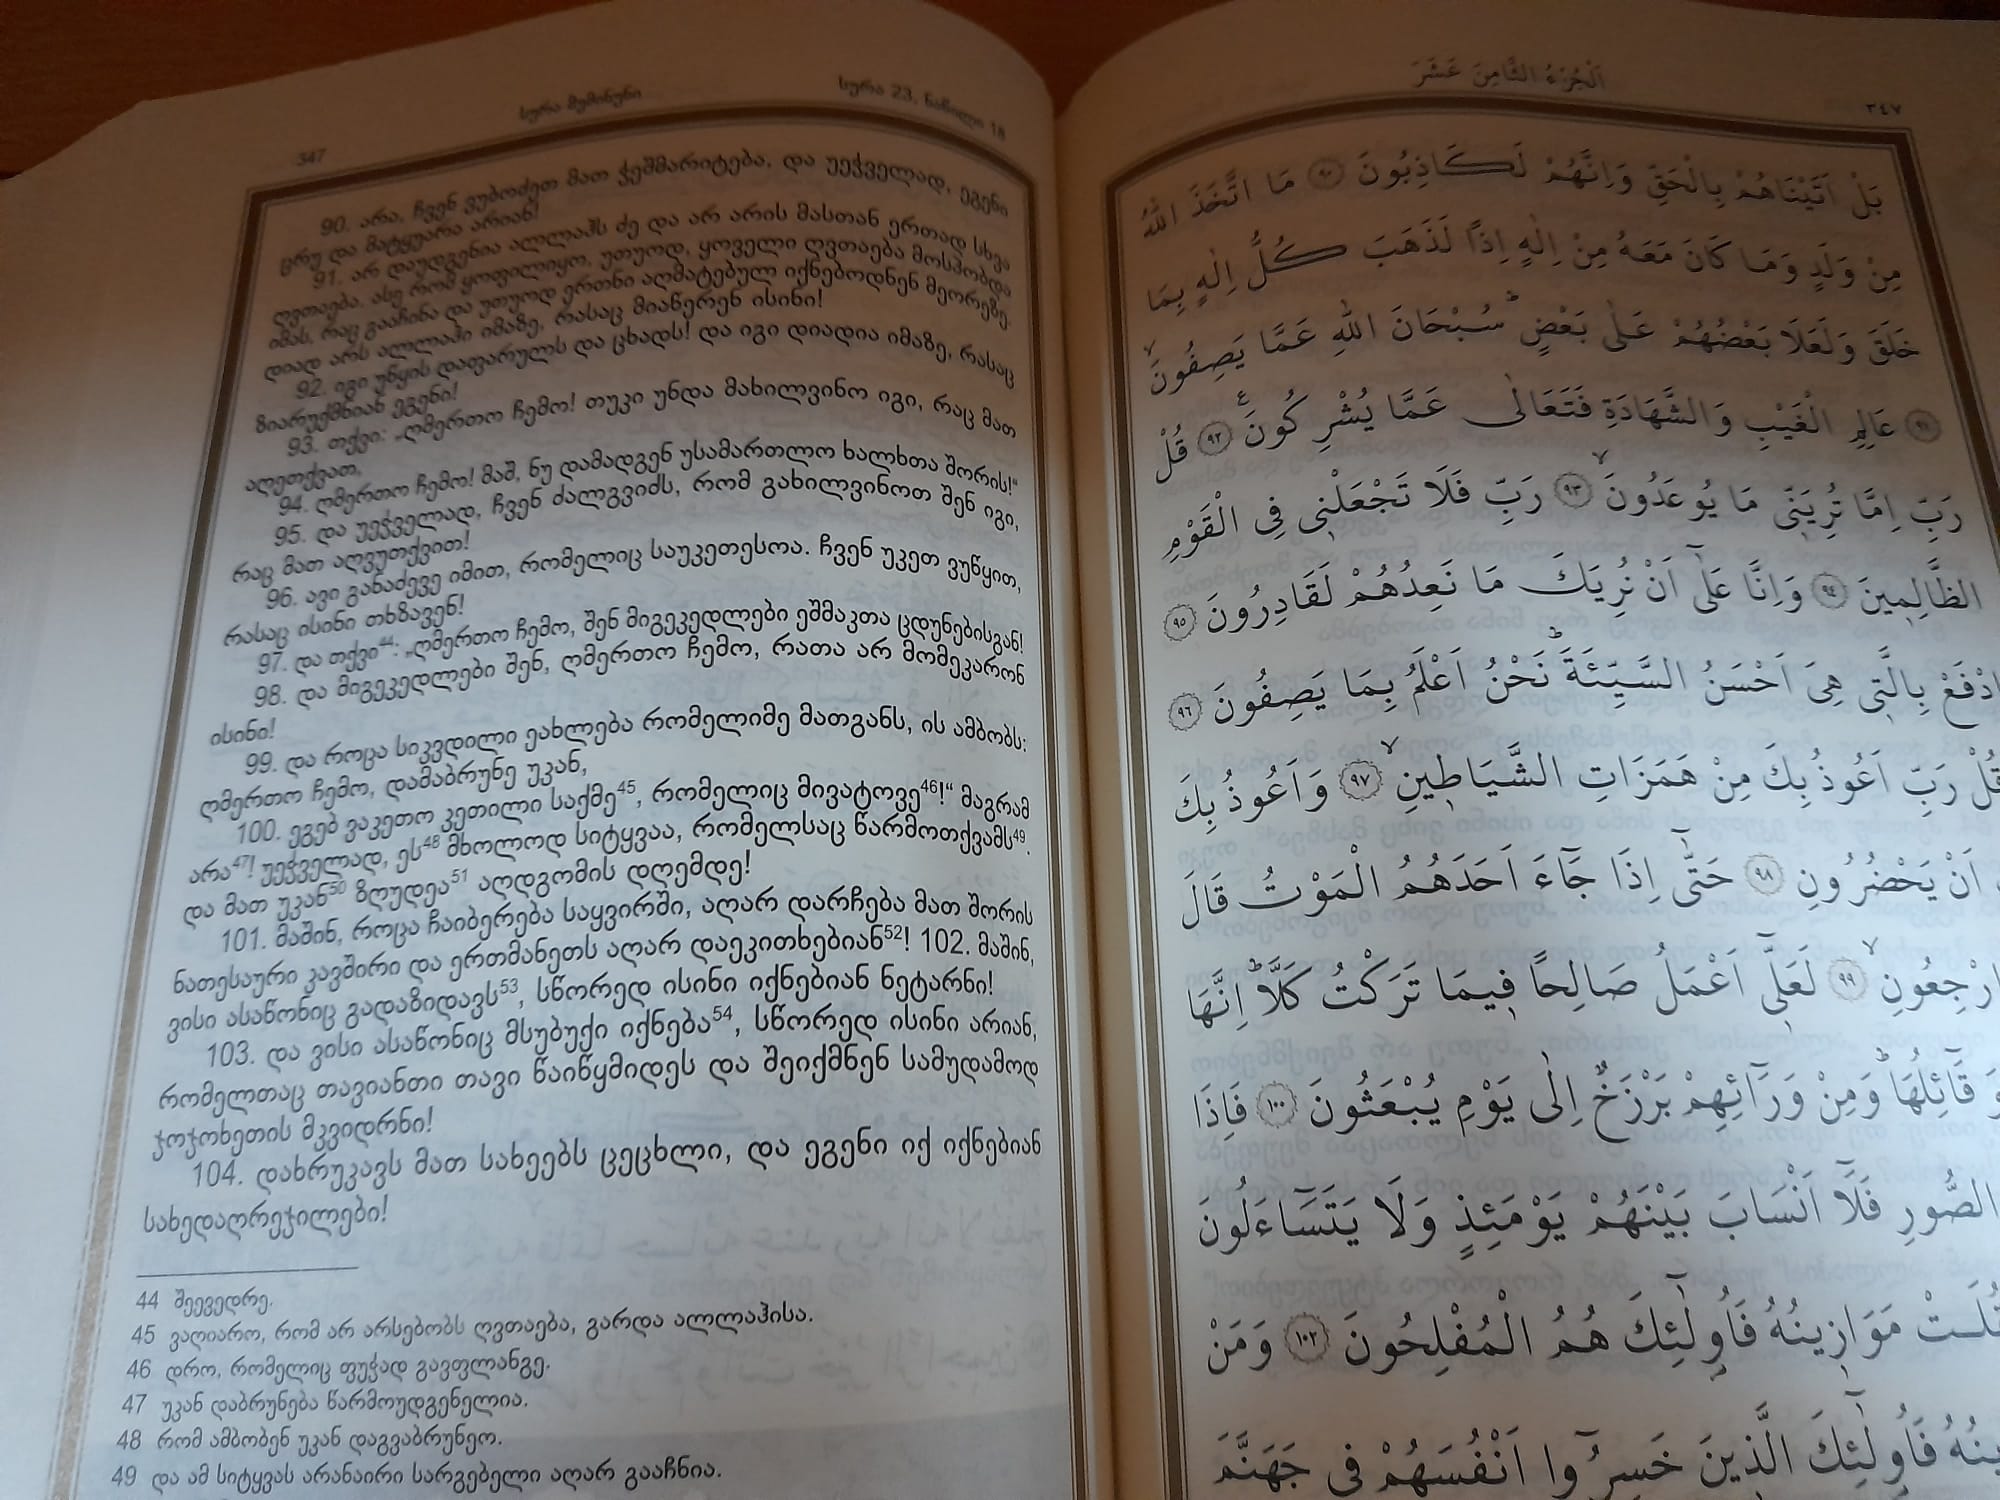 347
სურა მუმინუნი
სურა 23, ნაწილი 18
90. არა, ჩვენ ვუბოძეთ მათ ჭეშმარიტება, და უეჭველად, ეგენი
ცრუ და მატყუარა არიან!
91. არ დაუდგენია ალლაჰს ძე და არ არის მასთან ერთად სხვა
ღვთაება. ასე რომ ყოფილიყო, უთუოდ, ყოველი ღვთაება მოსპობდა
იმას, რაც გააჩინა და უთუოდ ერთნი აღმატებულ იქნებოდნენ მეორეზე.
დიად არს ალლაჰი იმაზე, რასაც მიაწერენ ისინი!
92. იგი უწყის დაფარულს და ცხადს! და იგი დიადია იმაზე, რასაც
ზიარუქმნიან ეგენი!
93. თქვი: „ღმერთო ჩემო! თუკი უნდა მახილვინო იგი, რაც მათ
აღეთქვათ,
94. ღმერთო ჩემო! მაშ, ნუ დამადგენ უსამართლო ხალხთა შორის!“
95. და უეჭველად, ჩვენ ძალგვიძს, რომ გახილვინოთ შენ იგი,
რაც მათ აღვუთქვით!
96. ავი განაძევე იმით, რომელიც საუკეთესოა. ჩვენ უკეთ ვუწყით,
რასაც ისინი თხზავენ!
97. და თქვი44: „ღმერთო ჩემო, შენ მიგეკედლები ეშმაკთა ცდუნებისგან!
98. და მიგეკედლები შენ, ღმერთო ჩემო, რათა არ მომეკარონ
ისინი!
99. და როცა სიკვდილი ეახლება რომელიმე მათგანს, ის ამბობს:
ღმერთო ჩემო, დამაბრუნე უკან,
100. ეგებ ვაკეთო კეთილი საქმე45, რომელიც მივატოვე46!“ მაგრამ
არა47! უეჭველად, ეს48 მხოლოდ სიტყვაა, რომელსაც წარმოთქვამს49.
და მათ უკან50 ზღუდეა51 აღდგომის დღემდე!
101. მაშინ, როცა ჩაიბერება საყვირში, აღარ დარჩება მათ შორის
ნათესაური კავშირი და ერთმანეთს აღარ დაეკითხებიან52! 102. მაშინ,
ვისი ასაწონიც გადაზიდავს53, სწორედ ისინი იქნებიან ნეტარნი!
103. და ვისი ასაწონიც მსუბუქი იქნება54, სწორედ ისინი არიან,
რომელთაც თავიანთი თავი წაიწყმიდეს და შეიქმნენ სამუდამოდ
ჯოჯოხეთის მკვიდრნი!
104. დახრუკავს მათ სახეებს ცეცხლი, და ეგენი იქ იქნებიან
სახედაღრეჯილები!
44 შეევედრე.
45 ვაღიარო, რომ არ არსებობს ღვთაება, გარდა ალლაჰისა.
46 დრო, რომელიც ფუჭად გავფლანგე.
47 უკან დაბრუნება წარმოუდგენელია.
48 რომ ამბობენ უკან დაგვაბრუნეო.
49 და ამ სიტყვას არანაირი სარგებელი აღარ გააჩნია.
اَلْجُزْءُ الثَّامِنَ عَشَرَ
٣٤٧
بَلْ اَتَيْنَاهُمْ بِالْحَقِّ وَاِنَّهُمْ لَكَاذِبُونَ ٩٠ مَا اتَّخَذَ اللّٰهُ
مِنْ وَلَدٍ وَمَا كَانَ مَعَهُ مِنْ اِلٰهٍ اِذًا لَذَهَبَ كُلُّ اِلٰهٍ بِمَا
خَلَقَ وَلَعَلَا بَعْضُهُمْ عَلٰى بَعْضٍ سُبْحَانَ اللّٰهِ عَمَّا يَصِفُونَ
٩١ عَالِمِ الْغَيْبِ وَالشَّهَادَةِ فَتَعَالٰى عَمَّا يُشْرِكُونَ ٩٢ قُلْ
رَبِّ اِمَّا تُرِيَنّ۪ى مَا يُوعَدُونَ ٩٣ رَبِّ فَلَا تَجْعَلْن۪ى فِى الْقَوْمِ
الظَّالِم۪ينَ ٩٤ وَاِنَّا عَلٰٓى اَنْ نُرِيَكَ مَا نَعِدُهُمْ لَقَادِرُونَ ٩٥
اِدْفَعْ بِالَّت۪ى هِىَ اَحْسَنُ السَّيِّئَةَ نَحْنُ اَعْلَمُ بِمَا يَصِفُونَ ٩٦
قُلْ رَبِّ اَعُوذُ بِكَ مِنْ هَمَزَاتِ الشَّيَاط۪ينِ ٩٧ وَاَعُوذُ بِكَ
اَنْ يَحْضُرُونِ ٩٨ حَتّٰٓى اِذَا جَٓاءَ اَحَدَهُمُ الْمَوْتُ قَالَ
ارْجِعُونِ ٩٩ لَعَلّ۪ٓى اَعْمَلُ صَالِحًا ف۪يمَا تَرَكْتُ كَلَّا اِنَّهَا
قَٓائِلُهَا وَمِنْ وَرَٓائِهِمْ بَرْزَخٌ اِلٰى يَوْمِ يُبْعَثُونَ ١٠٠ فَاِذَا
الصُّورِ فَلَٓا اَنْسَابَ بَيْنَهُمْ يَوْمَئِذٍ وَلَا يَتَسَٓاءَلُونَ
مَوَاز۪ينُهُ فَاُو۬لٰٓئِكَ هُمُ الْمُفْلِحُونَ ١٠٢ وَمَنْ
فَاُو۬لٰٓئِكَ الَّذ۪ينَ خَسِرُٓوا اَنْفُسَهُمْ ف۪ى جَهَنَّمَ